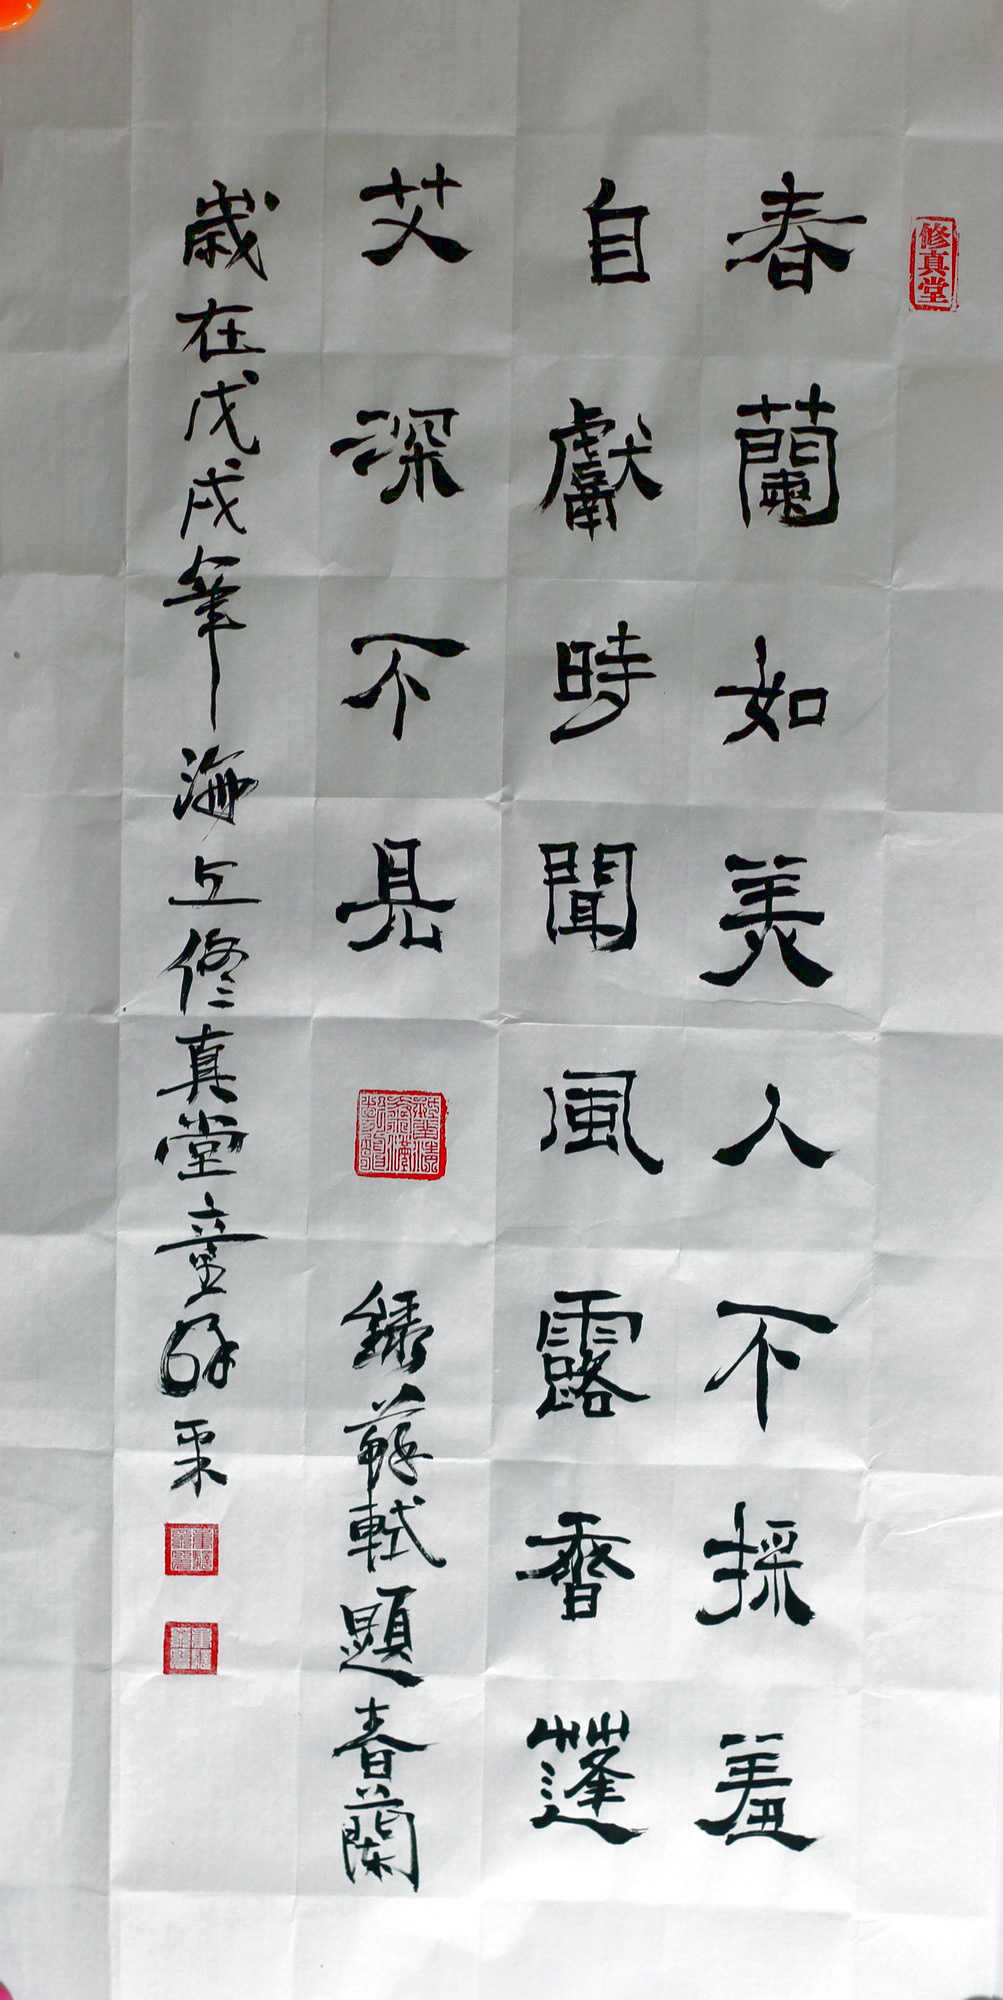 修真堂
春蘭如美人不採羞
自獻時聞風露香蓬
艾深不見
錄蘇軾題春蘭
歲在戊戌年海上修真堂童